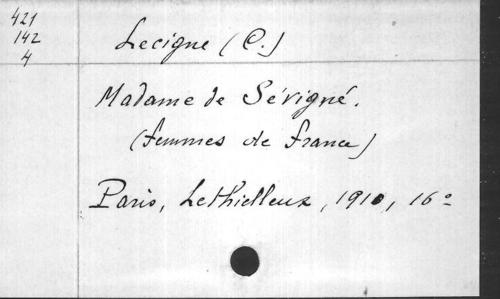 421
142
4
Lecigne (C.)
Madame de Sévigné.
(femmes de France)
Paris, Lethielleux, 1910, 16º